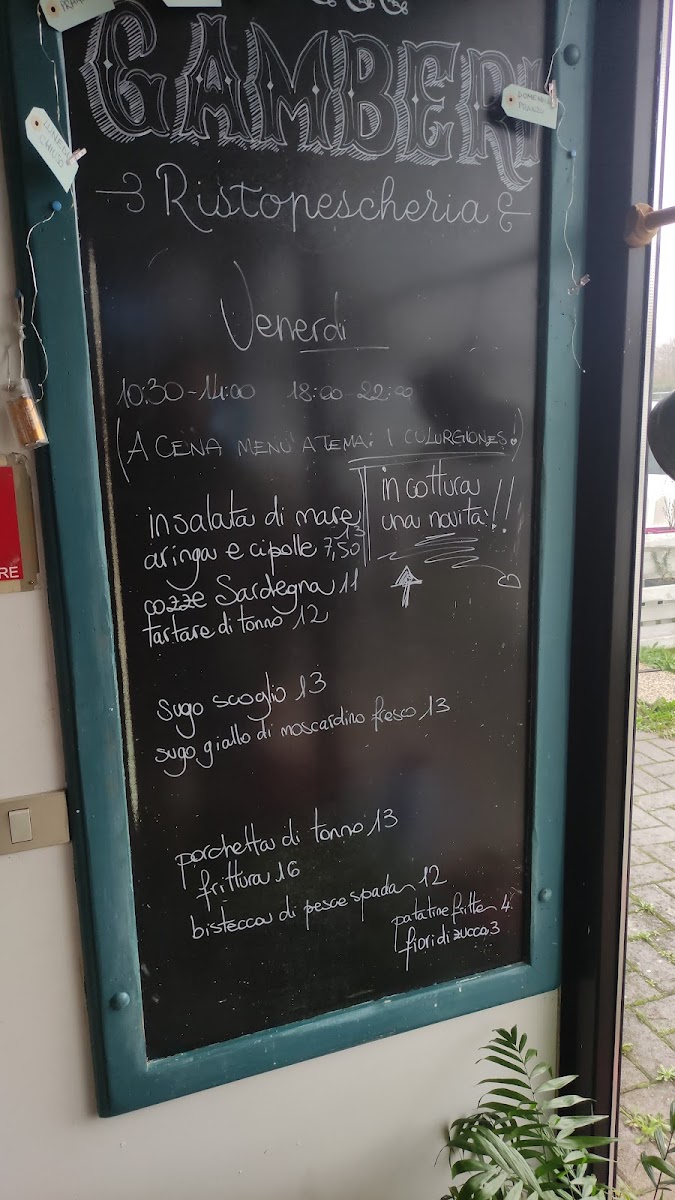 GAMBERI
Ristopescheria
DOMENICA
PRANZO
Venerdi
10:30-14:00 18:00-22:00
(A CENA MENU' A TEMA: I CULURGIONES!)
in cottura
una novità!!
insalata di mare 13
aringa e cipolle 7,50
cozze Sardegna 11
tartare di tonno 12
sugo scoglio 13
sugo giallo di moscardino fresco 13
porchetta di tonno 13
frittura 16
bistecca di pesce spada 12
patatine fritte 4
fiori di zucca 3
RE